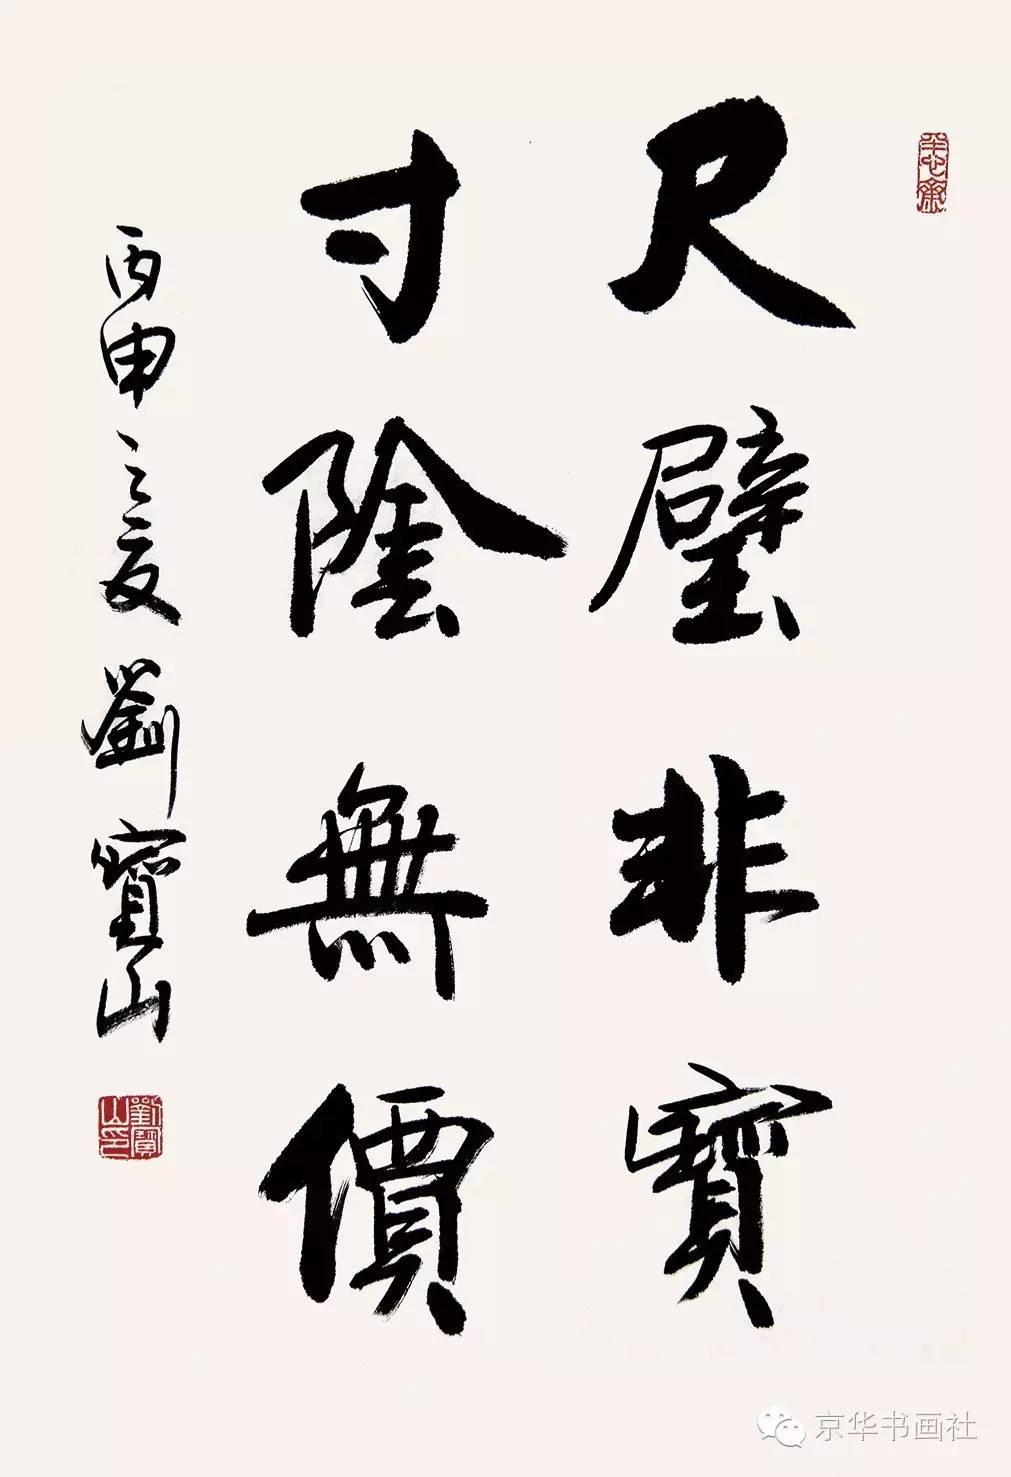 尺璧非寶
寸陰無價
丙申之夏劉寶山
劉寶山印
京华书画社